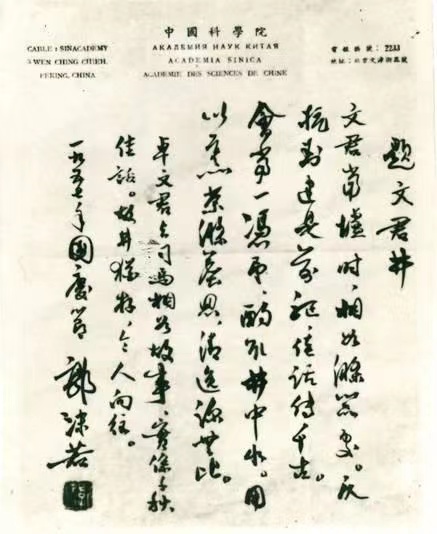 中國科學院
АКАДЕМИЯ НАУК КИТАЯ
ACADEMIA SINICA
ACADEMIE DES SCIENCES DE CHINE
CABLE: SINACADEMY
3 WEN CHING CHIEH.
PEKING, CHINA
電報掛號: 2233
地址:北京文津街三號
題文君井
文君當壚時,相如滌器處。反
抗封建是前驅,佳話傳千古。
會當一憑弔,酌取井中水。用
以烹茶滌塵思,清逸涼無比。
卓文君与司馬相如故事,實係千秋
佳話。故井猶存,令人向往。
一九五七年國慶節 郭沫若